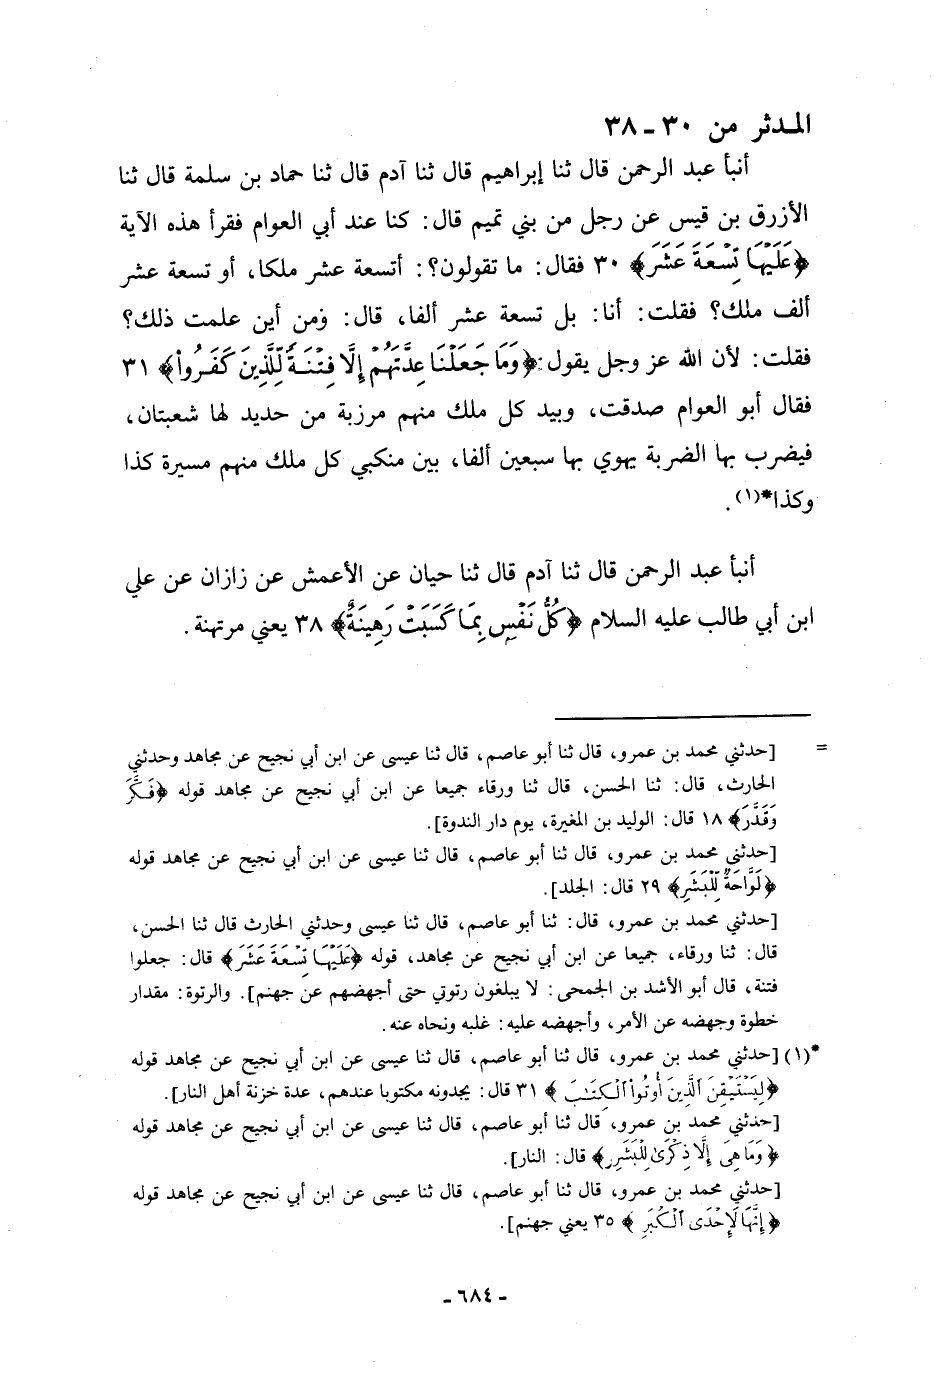 المدثر من ٣٠ ـ ٣٨
أنبأ عبد الرحمن قال ثنا إبراهيم قال ثنا آدم قال ثنا حماد بن سلمة قال ثنا
الأزرق بن قيس عن رجل من بني تميم قال: كنا عند أبي العوام فقرأ هذه الآية
﴿عَلَيْهَا تِسْعَةَ عَشَرَ﴾ ٣٠ فقال: ما تقولون؟: أتسعة عشر ملكا، أو تسعة عشر
ألف ملك؟ فقلت: أنا: بل تسعة عشر ألفا، قال: ومن أين علمت ذلك؟
فقلت: لأن الله عز وجل يقول: ﴿وَمَا جَعَلْنَا عِدَّتَهُمْ إِلَّا فِتْنَةً لِّلَّذِينَ كَفَرُوا۟﴾ ٣١
فقال أبو العوام صدقت، وبيد كل ملك منهم مرزبة من حديد لها شعبتان،
فيضرب بها الضربة يهوي بها سبعين ألفا، بين منكبي كل ملك منهم مسيرة كذا
وكذا*(١).
أنبأ عبد الرحمن قال ثنا آدم قال ثنا حيان عن الأعمش عن زازان عن علي
ابن أبي طالب عليه السلام ﴿كُلُّ نَفْسٍ بِمَا كَسَبَتْ رَهِينَةٌ﴾ ٣٨ يعني مرتهنة.
= [حدثني محمد بن عمرو، قال ثنا أبو عاصم، قال ثنا عيسى عن ابن أبي نجيح عن مجاهد وحدثني
الحارث، قال: ثنا الحسن، قال ثنا ورقاء جميعا عن ابن أبي نجيح عن مجاهد قوله ﴿فَكَّرَ
وَقَدَّرَ﴾ ١٨ قال: الوليد بن المغيرة، يوم دار الندوة].
[حدثني محمد بن عمرو، قال ثنا أبو عاصم، قال ثنا عيسى عن ابن أبي نجيح عن مجاهد قوله
﴿لَوَّاحَةٌ لِّلْبَشَرِ﴾ ٢٩ قال: الجلد].
[حدثني محمد بن عمرو، قال: ثنا أبو عاصم، قال ثنا عيسى وحدثني الحارث قال ثنا الحسن،
قال: ثنا ورقاء، جميعا عن ابن أبي نجيح عن مجاهد، قوله ﴿عَلَيْهَا تِسْعَةَ عَشَرَ﴾ قال: جعلوا
فتنة، قال أبو الأشد بن الجمحى: لا يبلغون رتوتي حتى أجهضهم عن جهنم]. والرتوة: مقدار
خطوة وجهضه عن الأمر، وأجهضه عليه: غلبه ونحاه عنه.
*(١) [حدثني محمد بن عمرو، قال ثنا أبو عاصم، قال ثنا عيسى عن ابن أبي نجيح عن مجاهد قوله
﴿لِيَسْتَيْقِنَ ٱلَّذِينَ أُوتُوا۟ ٱلْكِتَـٰبَ﴾ ٣١ قال: يجدونه مكتوبا عندهم، عدة خزنة أهل النار].
[حدثني محمد بن عمرو، قال ثنا أبو عاصم، قال ثنا عيسى عن ابن أبي نجيح عن مجاهد قوله
﴿وَمَا هِىَ إِلَّا ذِكْرَىٰ لِلْبَشَرِ﴾ قال: النار].
[حدثني محمد بن عمرو، قال ثنا أبو عاصم، قال ثنا عيسى عن ابن أبي نجيح عن مجاهد قوله
﴿إِنَّهَا لَإِحْدَى ٱلْكُبَرِ﴾ ٣٥ يعني جهنم].
- ٦٨٤ -